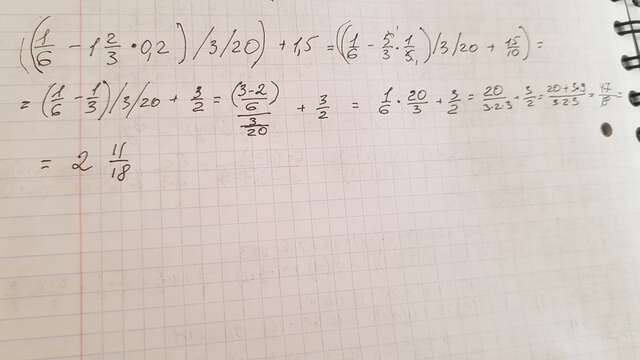 ((1/6 - 1 2/3 · 0,2) / 3/20) + 1,5 = ((1/6 - 5/3 · 1/5) / 3/20 + 15/10) =
= (1/6 - 1/3) / 3/20 + 3/2 = (3-2/6) / 3/20 + 3/2 = 1/6 · 20/3 + 3/2 = 20/3·2·3 + 3/2 = 20+3·9/3·2·3 = 47/18 =
= 2 11/18